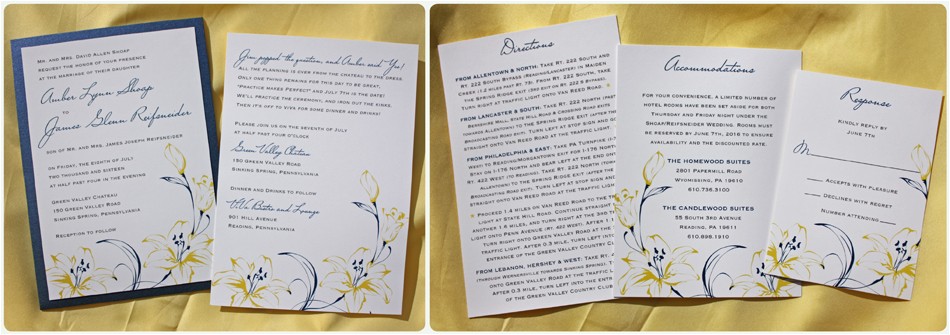 Mr. and Mrs. David Allen Shoap
request the honor of your presence
at the marriage of their daughter
Amber Lynn Shoap
to
James Glenn Reifsneider
son of Mr. and Mrs. James Joseph Reifsneider
Friday, the eighth of July
two thousand and sixteen
at half past four in the evening
Green Valley Chateau
150 Green Valley Road
Sinking Spring, Pennsylvania
Reception to follow
Jim popped the question, and Amber said "Yes!"
All the planning is over from the chateau to the dress.
Only one thing remains for this day to be great,
"Practice makes perfect" and July 7th is the date!
We'll practice the ceremony, and iron out the kinks,
Then it's off to Viva for some dinner and drinks!
Please join us on the seventh of July
at half past four o'clock.
Green Valley Chateau
150 Green Valley Road
Sinking Spring, Pennsylvania
Dinner and drinks to follow
ViVa Bistro and Lounge
901 Hill Avenue
Reading, Pennsylvania
Directions
From Allentown & North: Take Rt. 222 South and
Creek (1.2 miles past Rt. 73). From Rt. 222 South
Turn right at traffic light onto Van Reed Road.
From Lancaster & South: Take Rt. 222 North
towards Allentown) to the Spring Ridge exit (after the
Broadcasting Road exit). Turn left at stop sign and go
straight onto Van Reed Road at the traffic light.
From Philadelphia & East: Take PA Turnpike
West to Reading/Morgantown Exit to I-176 North.
Stay on I-176 North and bear left at the end onto
Rt. 422 West (to Reading). Take Rt. 222 North
Broadcasting Road exit). Turn left at stop sign and go
straight onto Van Reed Road at the traffic light.
Proceed 1.4 miles on Van Reed Road to the
light at State Hill Road. Continue straight
another 1.4 miles, and turn right at the third
light onto Penn Avenue (Rt. 422 West). After 1.1
turn right onto Green Valley Road at the
light. After 0.3 mile, turn left into
entrance up the Green Valley Country Club
From Lebanon, Hershey & West: Take Rt.
(through Wernersville towards Sinking Spring). Turn
left onto Green Valley Road at the traffic light.
After 0.3 mile, turn left into entrance
of the Green Valley Country Club
Accommodations
For your convenience, a limited number of
hotel rooms have been set aside for both
Thursday and Friday night under the
Shoap/Reifsneider Wedding. Rooms must
be reserved by June 7th, 2016 to ensure
availability and the discounted rate.
The Homewood Suites
2801 Paperhill Road
Wyomissing, PA 19610
610.736.3100
The Candlewood Suites
55 South 3rd Avenue
Reading, PA 19611
610.898.1910
Response
Kindly reply by
June 7th
M
Accepts with pleasure
Declines with regret
Number attending